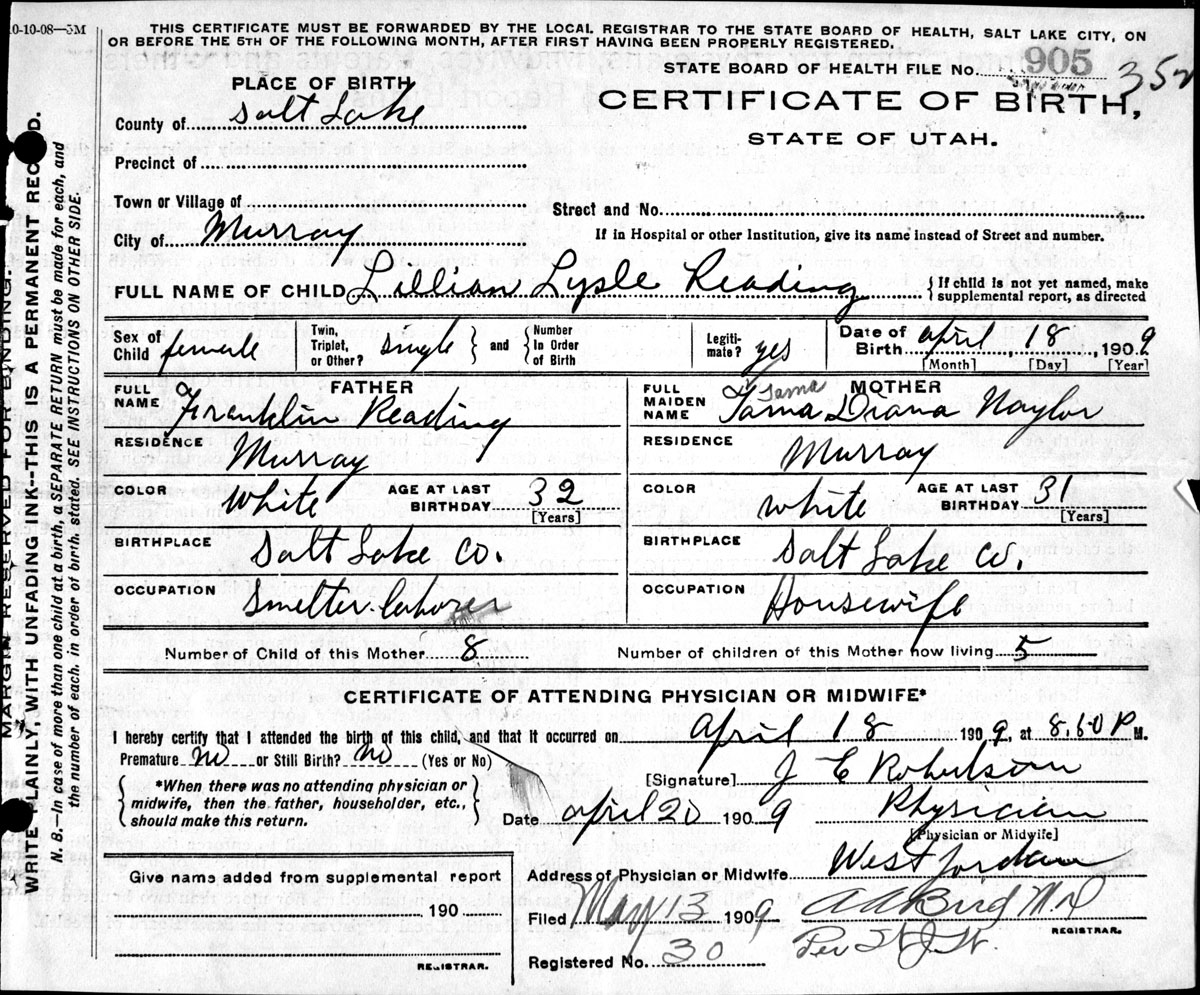 10-10-08—5M
THIS CERTIFICATE MUST BE FORWARDED BY THE LOCAL REGISTRAR TO THE STATE BOARD OF HEALTH, SALT LAKE CITY, ON
OR BEFORE THE 5TH OF THE FOLLOWING MONTH, AFTER FIRST HAVING BEEN PROPERLY REGISTERED.
MARGIN RESERVED FOR BINDING.
WRITE PLAINLY, WITH UNFADING INK--THIS IS A PERMANENT RECORD.
N. B.—In case of more than one child at a birth, a SEPARATE RETURN must be made for each, and
the number of each, in order of birth, stated. SEE INSTRUCTIONS ON OTHER SIDE.
PLACE OF BIRTH
County of Salt Lake
Precinct of
Town or Village of
City of Murray
STATE BOARD OF HEALTH FILE No. 905 352
CERTIFICATE OF BIRTH,
STATE OF UTAH.
Street and No.
If in Hospital or other Institution, give its name instead of Street and number.
FULL NAME OF CHILD Lillian Lysle Reading { If child is not yet named, make supplemental report, as directed
Sex of Child female
Twin, Triplet, or Other? single } and { Number In Order of Birth
Legitimate? yes
Date of Birth April 18, 1909
[Month] [Day] [Year]
FATHER
FULL NAME Franklin Reading
RESIDENCE Murray
COLOR White AGE AT LAST BIRTHDAY 32 [Years]
BIRTHPLACE Salt Lake Co.
OCCUPATION Smelter laborer
MOTHER
Tama
FULL MAIDEN NAME Tama Diana Naylor
RESIDENCE Murray
COLOR White AGE AT LAST BIRTHDAY 31 [Years]
BIRTHPLACE Salt Lake Co.
OCCUPATION Housewife
Number of Child of this Mother 8 Number of children of this Mother now living 5
CERTIFICATE OF ATTENDING PHYSICIAN OR MIDWIFE*
I hereby certify that I attended the birth of this child, and that it occurred on April 18 1909, at 8.50 P M.
Premature No or Still Birth? No (Yes or No)
*When there was no attending physician or
midwife, then the father, householder, etc.,
should make this return.
[Signature] J E Robertson
Date April 20 1909 Physician
[Physician or Midwife]
Address of Physician or Midwife West Jordan
Give name added from supplemental report
190
REGISTRAR.
Filed May 13 1909 M.D.
REGISTRAR.
Registered No. 30 Per